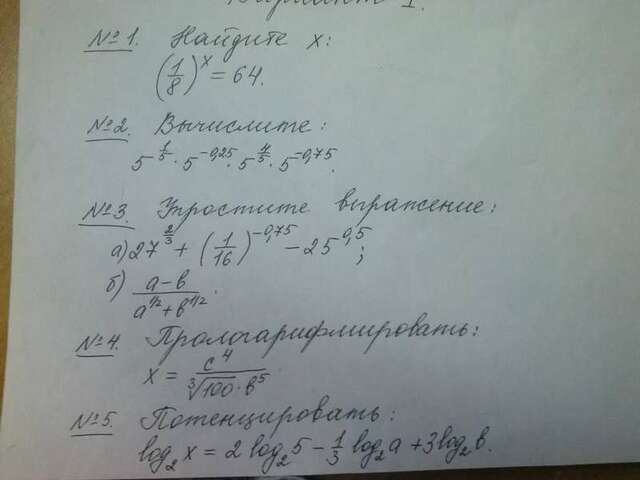 Вариант I.
№1. Найдите x:
(1/8)^x = 64.
№2. Вычислите:
5^(1/5) · 5^(-0,25) · 5^(4/5) · 5^(-0,75).
№3. Упростите выражение:
а) 27^(2/3) + (1/16)^(-0,75) - 25^(0,5);
б) (a-b)/(a^(1/2) + b^(1/2)).
№4. Прологарифмировать:
x = c^4/(∛100 · b^5)
№5. Потенцировать:
log₂x = 2 log₂5 - 1/3 log₂a + 3log₂b.